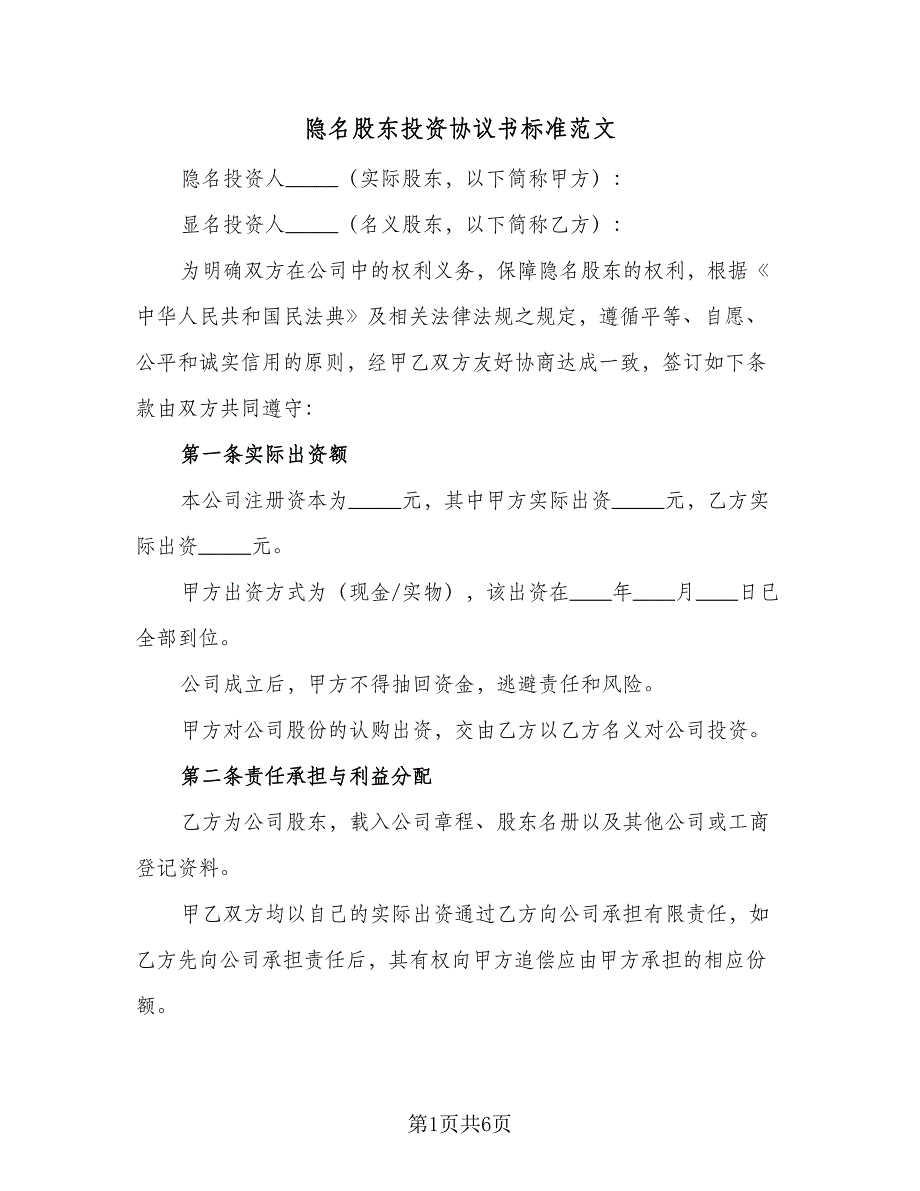 隐名股东投资协议书标准范文
隐名投资人_____（实际股东，以下简称甲方）：
显名投资人_____（名义股东，以下简称乙方）：
为明确双方在公司中的权利义务，保障隐名股东的权利，根据《
中华人民共和国民法典》及相关法律法规之规定，遵循平等、自愿、
公平和诚实信用的原则，经甲乙双方友好协商达成一致，签订如下条
款由双方共同遵守：
第一条实际出资额
本公司注册资本为_____元，其中甲方实际出资_____元，乙方实
际出资_____元。
甲方出资方式为（现金/实物），该出资在____年____月____日已
全部到位。
公司成立后，甲方不得抽回资金，逃避责任和风险。
甲方对公司股份的认购出资，交由乙方以乙方名义对公司投资。
第二条责任承担与利益分配
乙方为公司股东，载入公司章程、股东名册以及其他公司或工商
登记资料。
甲乙双方均以自己的实际出资通过乙方向公司承担有限责任，如
乙方先向公司承担责任后，其有权向甲方追偿应由甲方承担的相应份
额。
第1页共6页